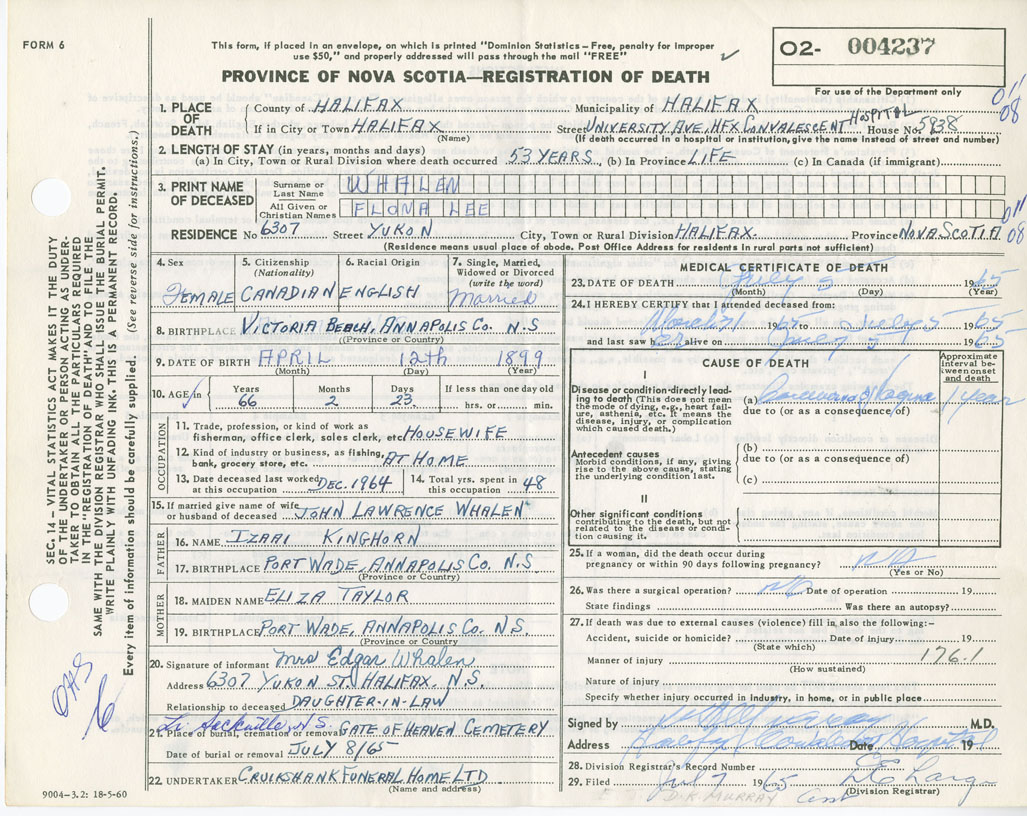 FORM 6
This form, if placed in an envelope, on which is printed "Dominion Statistics – Free, penalty for improper
use $50," and properly addressed will pass through the mail "FREE"
02- 004237
PROVINCE OF NOVA SCOTIA—REGISTRATION OF DEATH
For use of the Department only
1. PLACE OF DEATH
County of HALIFAX Municipality of HALIFAX
011
08
If in City or Town HALIFAX Street UNIVERSITY AVE, HFX CONVALESCENT HOSPITAL House No. 5938
(Name) (If death occurred in a hospital or institution, give the name instead of street and number)
2. LENGTH OF STAY (in years, months and days)
(a) In City, Town or Rural Division where death occurred 53 YEARS (b) In Province LIFE (c) In Canada (if immigrant)
3. PRINT NAME OF DECEASED
Surname or Last Name WHALEN
All Given or Christian Names FLONA LEE
011
08
RESIDENCE No 6307 Street YUKON City, Town or Rural Division HALIFAX Province NOVA SCOTIA
(Residence means usual place of abode. Post Office Address for residents in rural parts not sufficient)
4. Sex
FEMALE
5. Citizenship
(Nationality)
CANADIAN
6. Racial Origin
ENGLISH
7. Single, Married,
Widowed or Divorced
(write the word)
Married
8. BIRTHPLACE VICTORIA BEACH, ANNAPOLIS CO. N.S
(Province or Country)
9. DATE OF BIRTH APRIL 12th 1899
(Month) (Day) (Year)
10. AGE in
Years 66
Months 2
Days 23
If less than one day old
hrs. or min.
OCCUPATION
11. Trade, profession, or kind of work as
fisherman, office clerk, sales clerk, etc HOUSEWIFE
12. Kind of industry or business, as fishing,
bank, grocery store, etc. AT HOME
13. Date deceased last worked
at this occupation DEC. 1964
14. Total yrs. spent in
this occupation 48
15. If married give name of wife
or husband of deceased JOHN LAWRENCE WHALEN
FATHER
16. NAME IZAAI KINGHORN
17. BIRTHPLACE PORT WADE, ANNAPOLIS CO. N.S
(Province or Country)
MOTHER
18. MAIDEN NAME ELIZA TAYLOR
19. BIRTHPLACE PORT WADE, ANNAPOLIS CO. N.S.
(Province or Country)
20. Signature of informant Mrs Edgar Whalen
Address 6307 YUKON ST. HALIFAX, N.S.
Relationship to deceased DAUGHTER-IN-LAW
Sackville, N.S.
21. Place of burial, cremation or removal GATE OF HEAVEN CEMETERY
Date of burial or removal JULY 8/65
22. UNDERTAKER CRUIKSHANK FUNERAL HOME LTD
(Name and address)
9004-3.2: 18-5-60
MEDICAL CERTIFICATE OF DEATH
23. DATE OF DEATH July 5 1965
(Month) (Day) (Year)
24. I HEREBY CERTIFY that I attended deceased from:
March 1 1965 to July 5 1965
and last saw her alive on July 5 1965
CAUSE OF DEATH
Approximate
interval be-
tween onset
and death
I
Disease or condition directly lead-
ing to death (This does not mean
the mode of dying, e.g., heart fail-
ure, asthenia, etc. It means the
disease, injury, or complication
which caused death.)
(a) Vagina 1 year
due to (or as a consequence of)
Antecedent causes
Morbid conditions, if any, giving
rise to the above cause, stating
the underlying condition last.
(b)
due to (or as a consequence of)
(c)
II
Other significant conditions
contributing to the death, but not
related to the disease or condi-
tion causing it.
25. If a woman, did the death occur during
pregnancy or within 90 days following pregnancy?
(Yes or No)
26. Was there a surgical operation? No Date of operation 19
State findings Was there an autopsy?
27. If death was due to external causes (violence) fill in also the following:–
Accident, suicide or homicide? Date of injury 19
(State which)
Manner of injury 176.1
(How sustained)
Nature of injury
Specify whether injury occurred in industry, in home, or in public place
Signed by M.D.
Address Halifax Hospital Date 19
28. Division Registrar's Record Number
29. Filed Jul 7 1965
(Division Registrar)
D.K. MURRAY
SEC. 14 – VITAL STATISTICS ACT MAKES IT THE DUTY
OF THE UNDERTAKER OR PERSON ACTING AS UNDER-
TAKER TO OBTAIN ALL THE PARTICULARS REQUIRED
IN THE "REGISTRATION OF DEATH" AND TO FILE THE
SAME WITH THE DIVISION REGISTRAR WHO SHALL ISSUE THE BURIAL PERMIT.
WRITE PLAINLY WITH UNFADING INK. THIS IS A PERMANENT RECORD.
Every item of information should be carefully supplied. (See reverse side for instructions.)